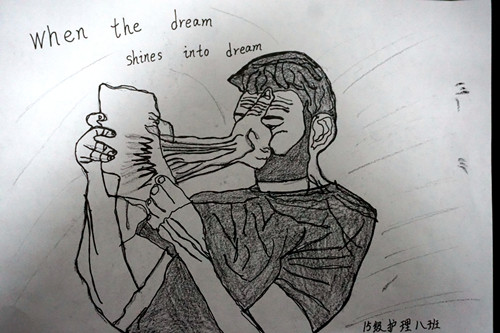 When the dream
shines into dream
15级护理八班